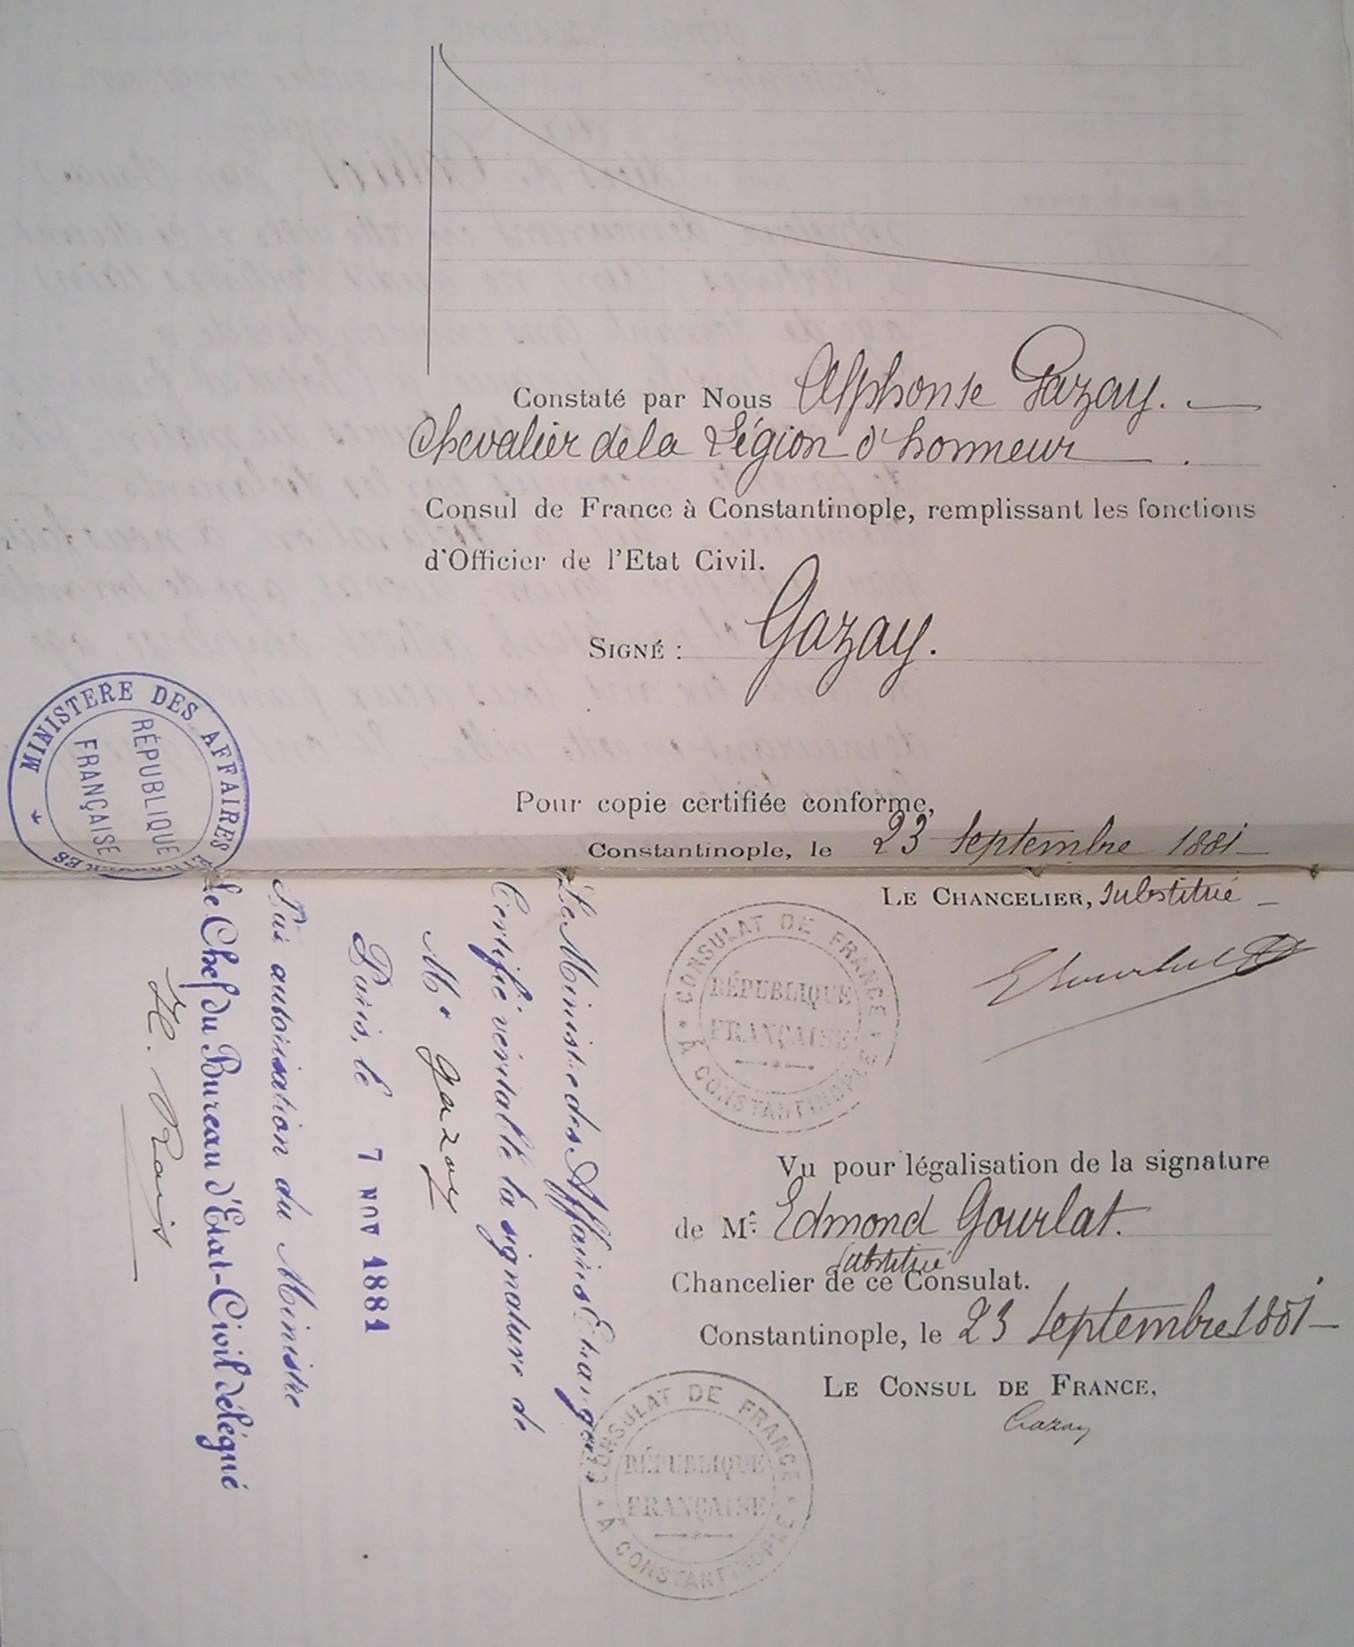 Constaté par Nous Alphonse Gazay.
Chevalier de la Légion d'honneur
Consul de France à Constantinople, remplissant les fonctions
d'Officier de l'Etat Civil.
SIGNÉ : Gazay.
Pour copie certifiée conforme,
Constantinople, le 23 Septembre 1881
LE CHANCELIER, Substitué
CONSULAT DE FRANCE
À CONSTANTINOPLE
RÉPUBLIQUE
FRANÇAISE
Vu pour légalisation de la signature
de Mr. Edmond Gourlat.
Substitué
Chancelier de ce Consulat.
Constantinople, le 23 Septembre 1881
LE CONSUL DE FRANCE,
Gazay
CONSULAT DE FRANCE
À CONSTANTINOPLE
RÉPUBLIQUE
FRANÇAISE
MINISTERE DES AFFAIRES
RÉPUBLIQUE
FRANÇAISE
Le Ministre des Affaires Etrangères
Certifie véritable la signature de
Mr. Gazay
Paris, le 7 NOV 1881
Par autorisation du Ministre
Le Chef du Bureau d'Etat-Civil délégué